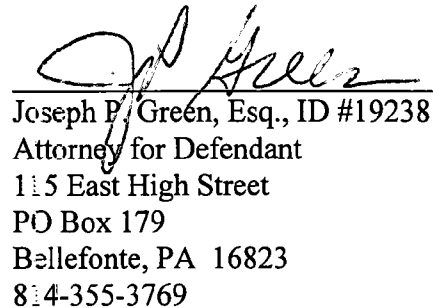 JP Green
Joseph P. Green, Esq., ID #19238
Attorney for Defendant
115 East High Street
PO Box 179
Bellefonte, PA 16823
814-355-3769